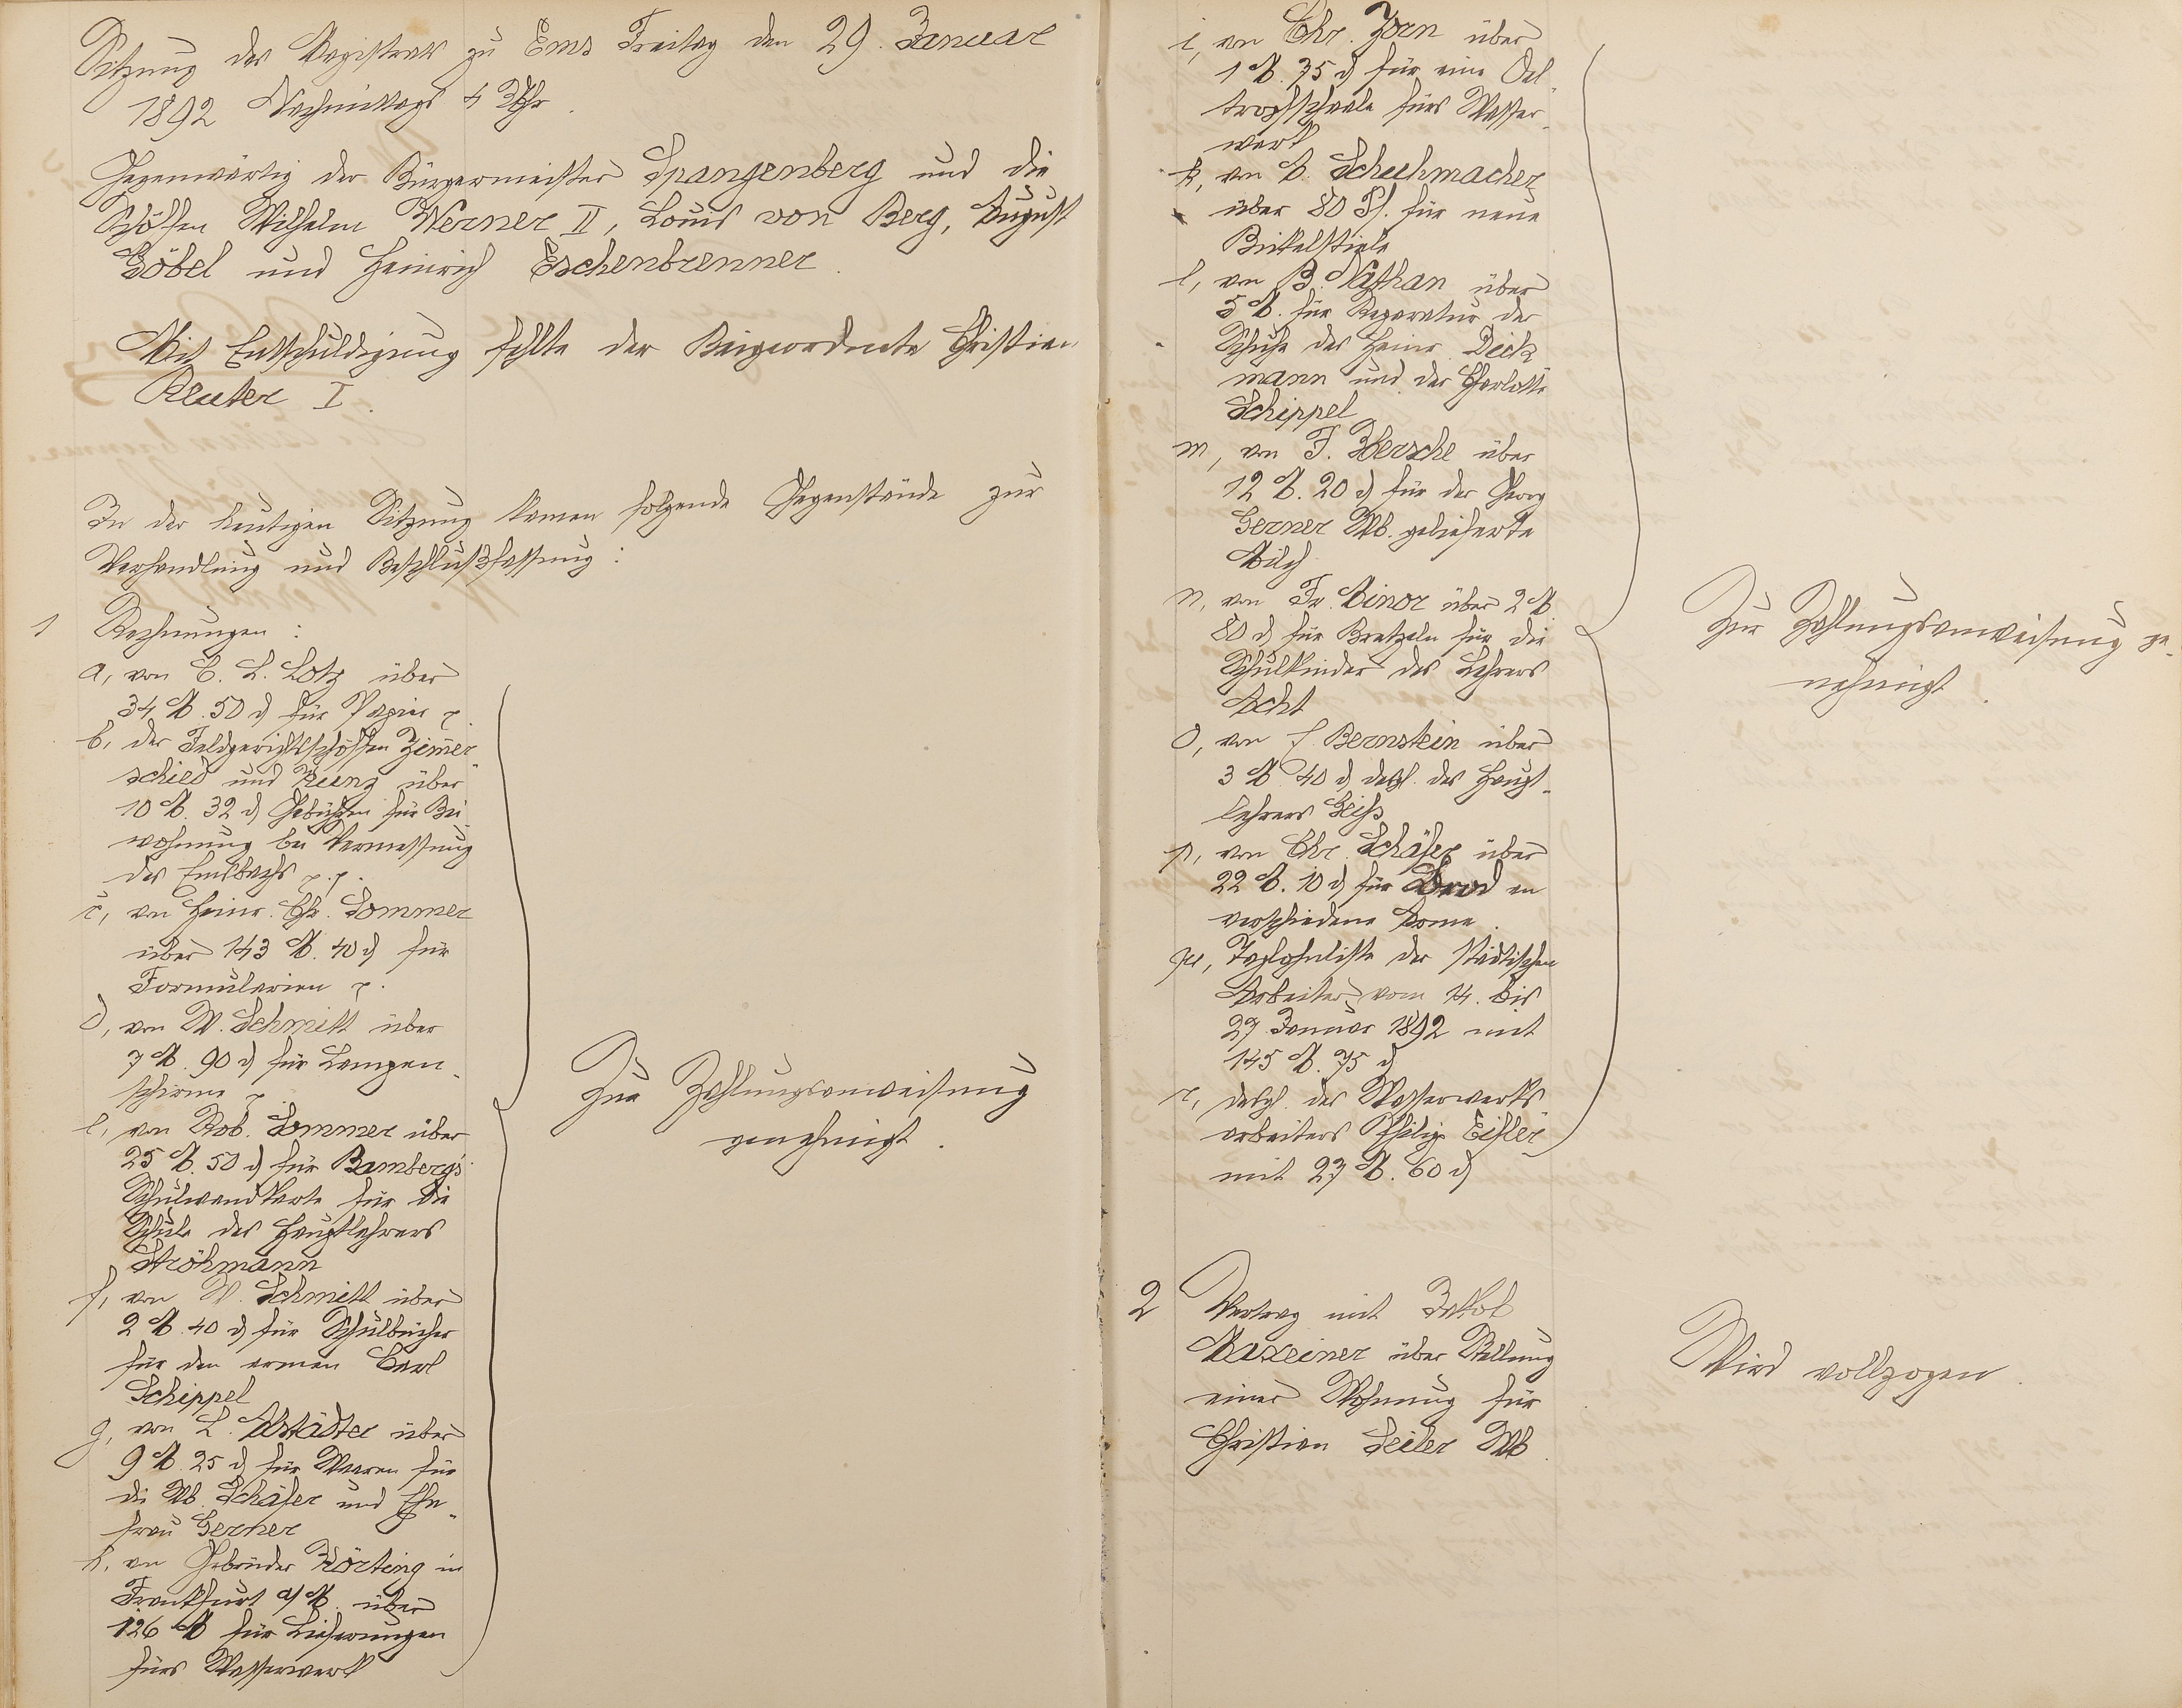 Sitzung des Magistrats zu Ems Freitag den 29. Januar
1892 Nachmittags 4 Uhr.
Gegenwärtig der Bürgermeister Spangenberg und die
Schöffen Wilhelm Werner II, Louis von Berg, August
Göbel und Heinrich Eschenbrenner.
Mit Entschuldigung fehlte der Beigeordnete Christian
Reuter I.
In der heutigen Sitzung kamen folgende Gegenstände zur
Verhandlung und Beschlußfassung:
1 Rechnungen:
a, von C. L. Lotz über
34 M. 50 d für Papier p.
b, der Feldgerichtsschöffen Zimmer-
schied und Kunz über
10 M. 32 d Gebühren für Bei-
wohnung bei Vermessung
des Emsbachs p. p.
c, von Heinr. Chr. Sommer
über 143 M. 40 d für
Formularien p.
d, von W. Schmitt über
7 M. 90 d für Lampen-
schirme p.
e, von Rob. Sommer über
25 M. 50 d für Bambergs
Schulwandkarte für die
Schule des Hauptlehrers
Ströhmann
f, von W. Schmitt über
2 M. 40 d für Schulbücher
für den armen Carl
Schippel
g, von L. Abstädter über
9 M. 25 d für Waaren für
die Wb. Schäfer und Ehe-
frau Gerner
h, von Gebrüder Körting in
Frankfurt a/M. über
126 M für Lieferungen
fürs Wasserwerk
Zur Zahlungsanweisung
genehmigt.
i, von Chr. Zorn über
1 M. 35 d für eine Oel-
tropfschaale fürs Wasser-
werk
k, von A. Schuhmacher
über 80 Pf. für neue
Bickelstiele
l, von B. Nathan über
5 M. für Reparatur der
Schuhe des Heinr. Dick
mann und der Charlotte
Schippel
m, von F. Hersche über
12 M. 20 d für der Georg
Gerner Wb. gelieferte
Milch
n, von Fr. Minor über 2 M
80 d für Bretzeln für die
Schulkinder des Lehrers
Acht
o, von S. Bernstein über
3 M 40 d desgl. des Haupt-
lehrers Geiß
p, von Chr. Schäfer über
22 M. 10 d für Brod an
verschiedene Arme.
qu, Taglohnliste der städtischen
Arbeiter vom 14. bis
27. Januar 1892 mit
145 M. 75 d
r, desgl. des Wasserwerks
arbeiters Philipp Eisler
mit 27 M. 60 d
Zur Zahlungsanweisung ge-
nehmigt.
2 Vertrag mit Jakob
Maxeiner über Stellung
einer Wohnung für
Christian Seiler Wb.
Wird vollzogen.